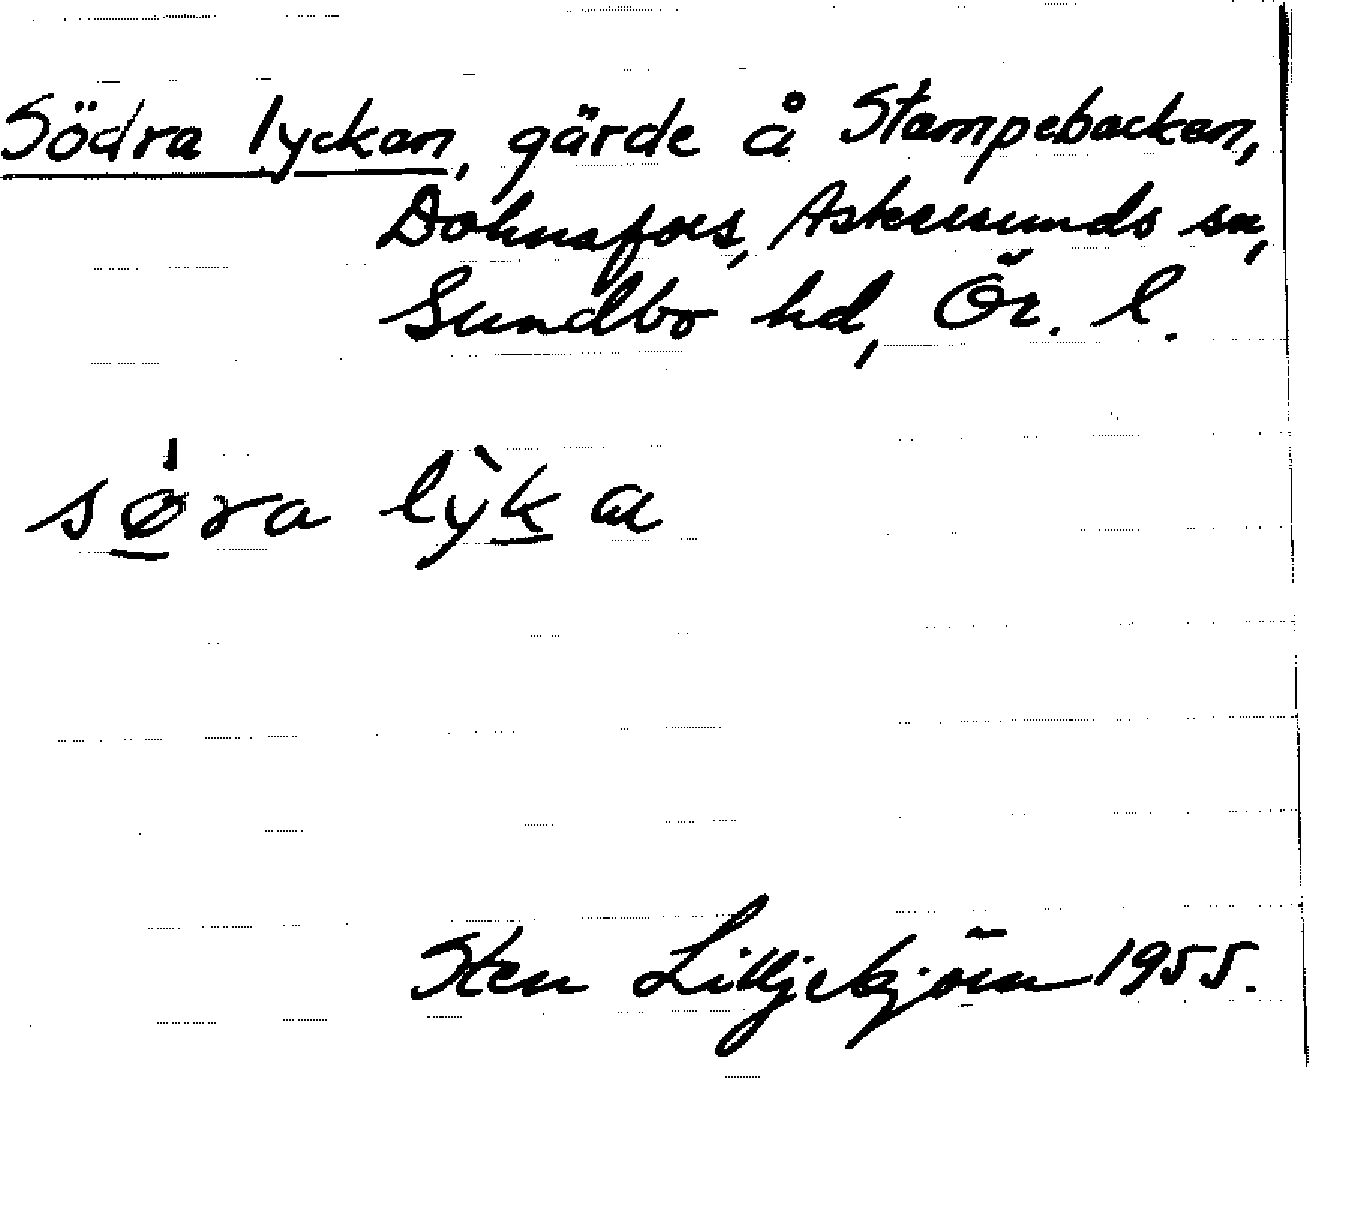 Södra lyckan, gärde å Stampebacken,
Dohnafors, Askersunds sn,
Sundbo hd, Ör. l.
sǿ̱ra lỳḵa
Sten Lilljebjörn 1955.